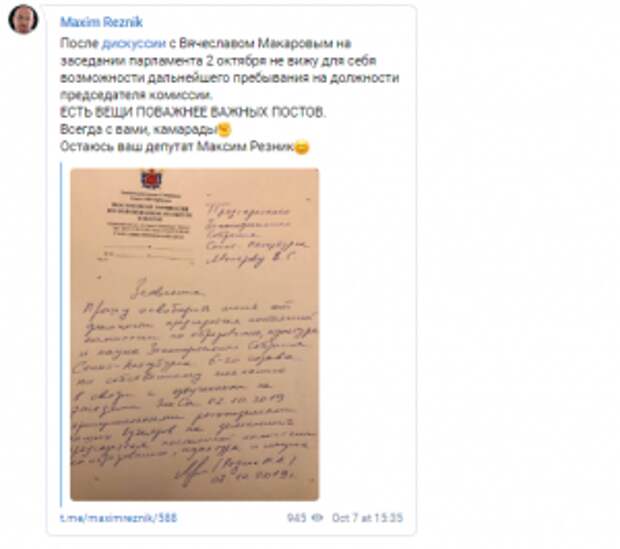 Maxim Reznik
После дискуссии с Вячеславом Макаровым на
заседании парламента 2 октября не вижу для себя
возможности дальнейшего пребывания на должности
председателя комиссии.
ЕСТЬ ВЕЩИ ПОВАЖНЕЕ ВАЖНЫХ ПОСТОВ.
Всегда с вами, камарады✊
Остаюсь ваш депутат Максим Резник
Председателю
Законодательного
Собрания
Санкт-Петербурга
Макарову В.С.
Заявление
Прошу освободить меня от
должности председателя постоянной
комиссии по образованию, культуре
и науке Законодательного Собрания
Санкт-Петербурга 6-го созыва
по собственному желанию
в связи с
заседании ЗакСа 02.10.2019
взглядов на
председателя постоянной комиссии
по образованию, культуре и науке
(Резник М.Л.)
t.me/maximreznik/588
945
Oct 7 at 15:35